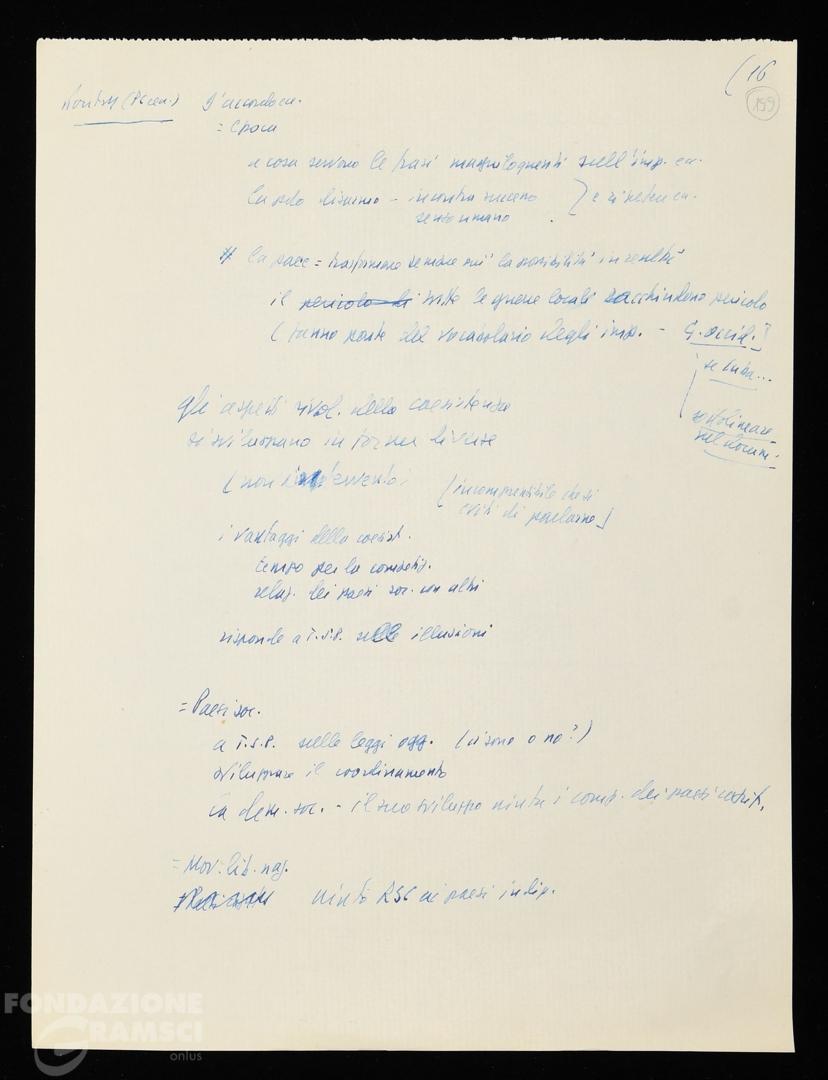 (16
159
D'accordo cu.
= Epoca
a cosa servono le frasi magniloquenti sull'imp. cu.
disarmo – incontra nuceno
senso umano
# la pace = trasformare sempre più la possibilità in realtà
il pericolo di tutte le guerre locali racchiudono pericolo
(fanno parte del vocabolario degli imp. – G. occid.]
sottolineare
nel docum.
gli aspetti rivol. della coesistenza
si sviluppano in forme diverse
(non intervento)
(incomprensibile che si
eviti di parlarne]
i vantaggi della coesist.
tempo per la competiz.
relaz. dei paesi soc. con altri
risponde a T.S.P. sulle illusioni
= Paesi soc.
a T.S.P. sulle leggi ogg. (ci sono o no?)
sviluppare il coordinamento
la dem. soc. – il suo sviluppo aiuta i comp. dei paesi capit.
= Mov. lib. naz.
aiuto RSC ai paesi indip.
FONDAZIONE
GRAMSCI
onlus